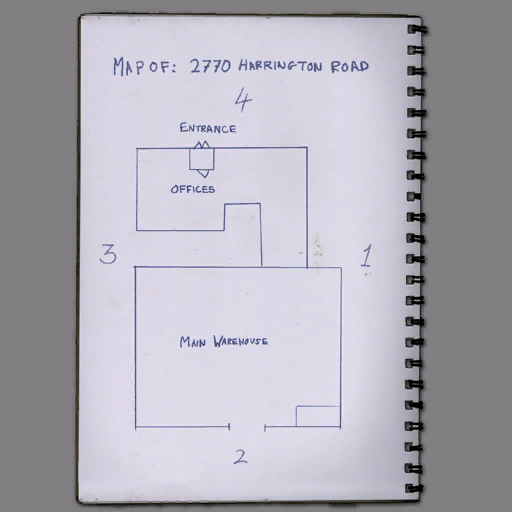 MAP OF: 2770 HARRINGTON ROAD
4
ENTRANCE
OFFICES
3
1
MAIN WAREHOUSE
2